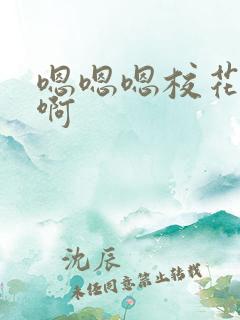 嗯嗯嗯校花
啊
沈辰
未经同意禁止转载